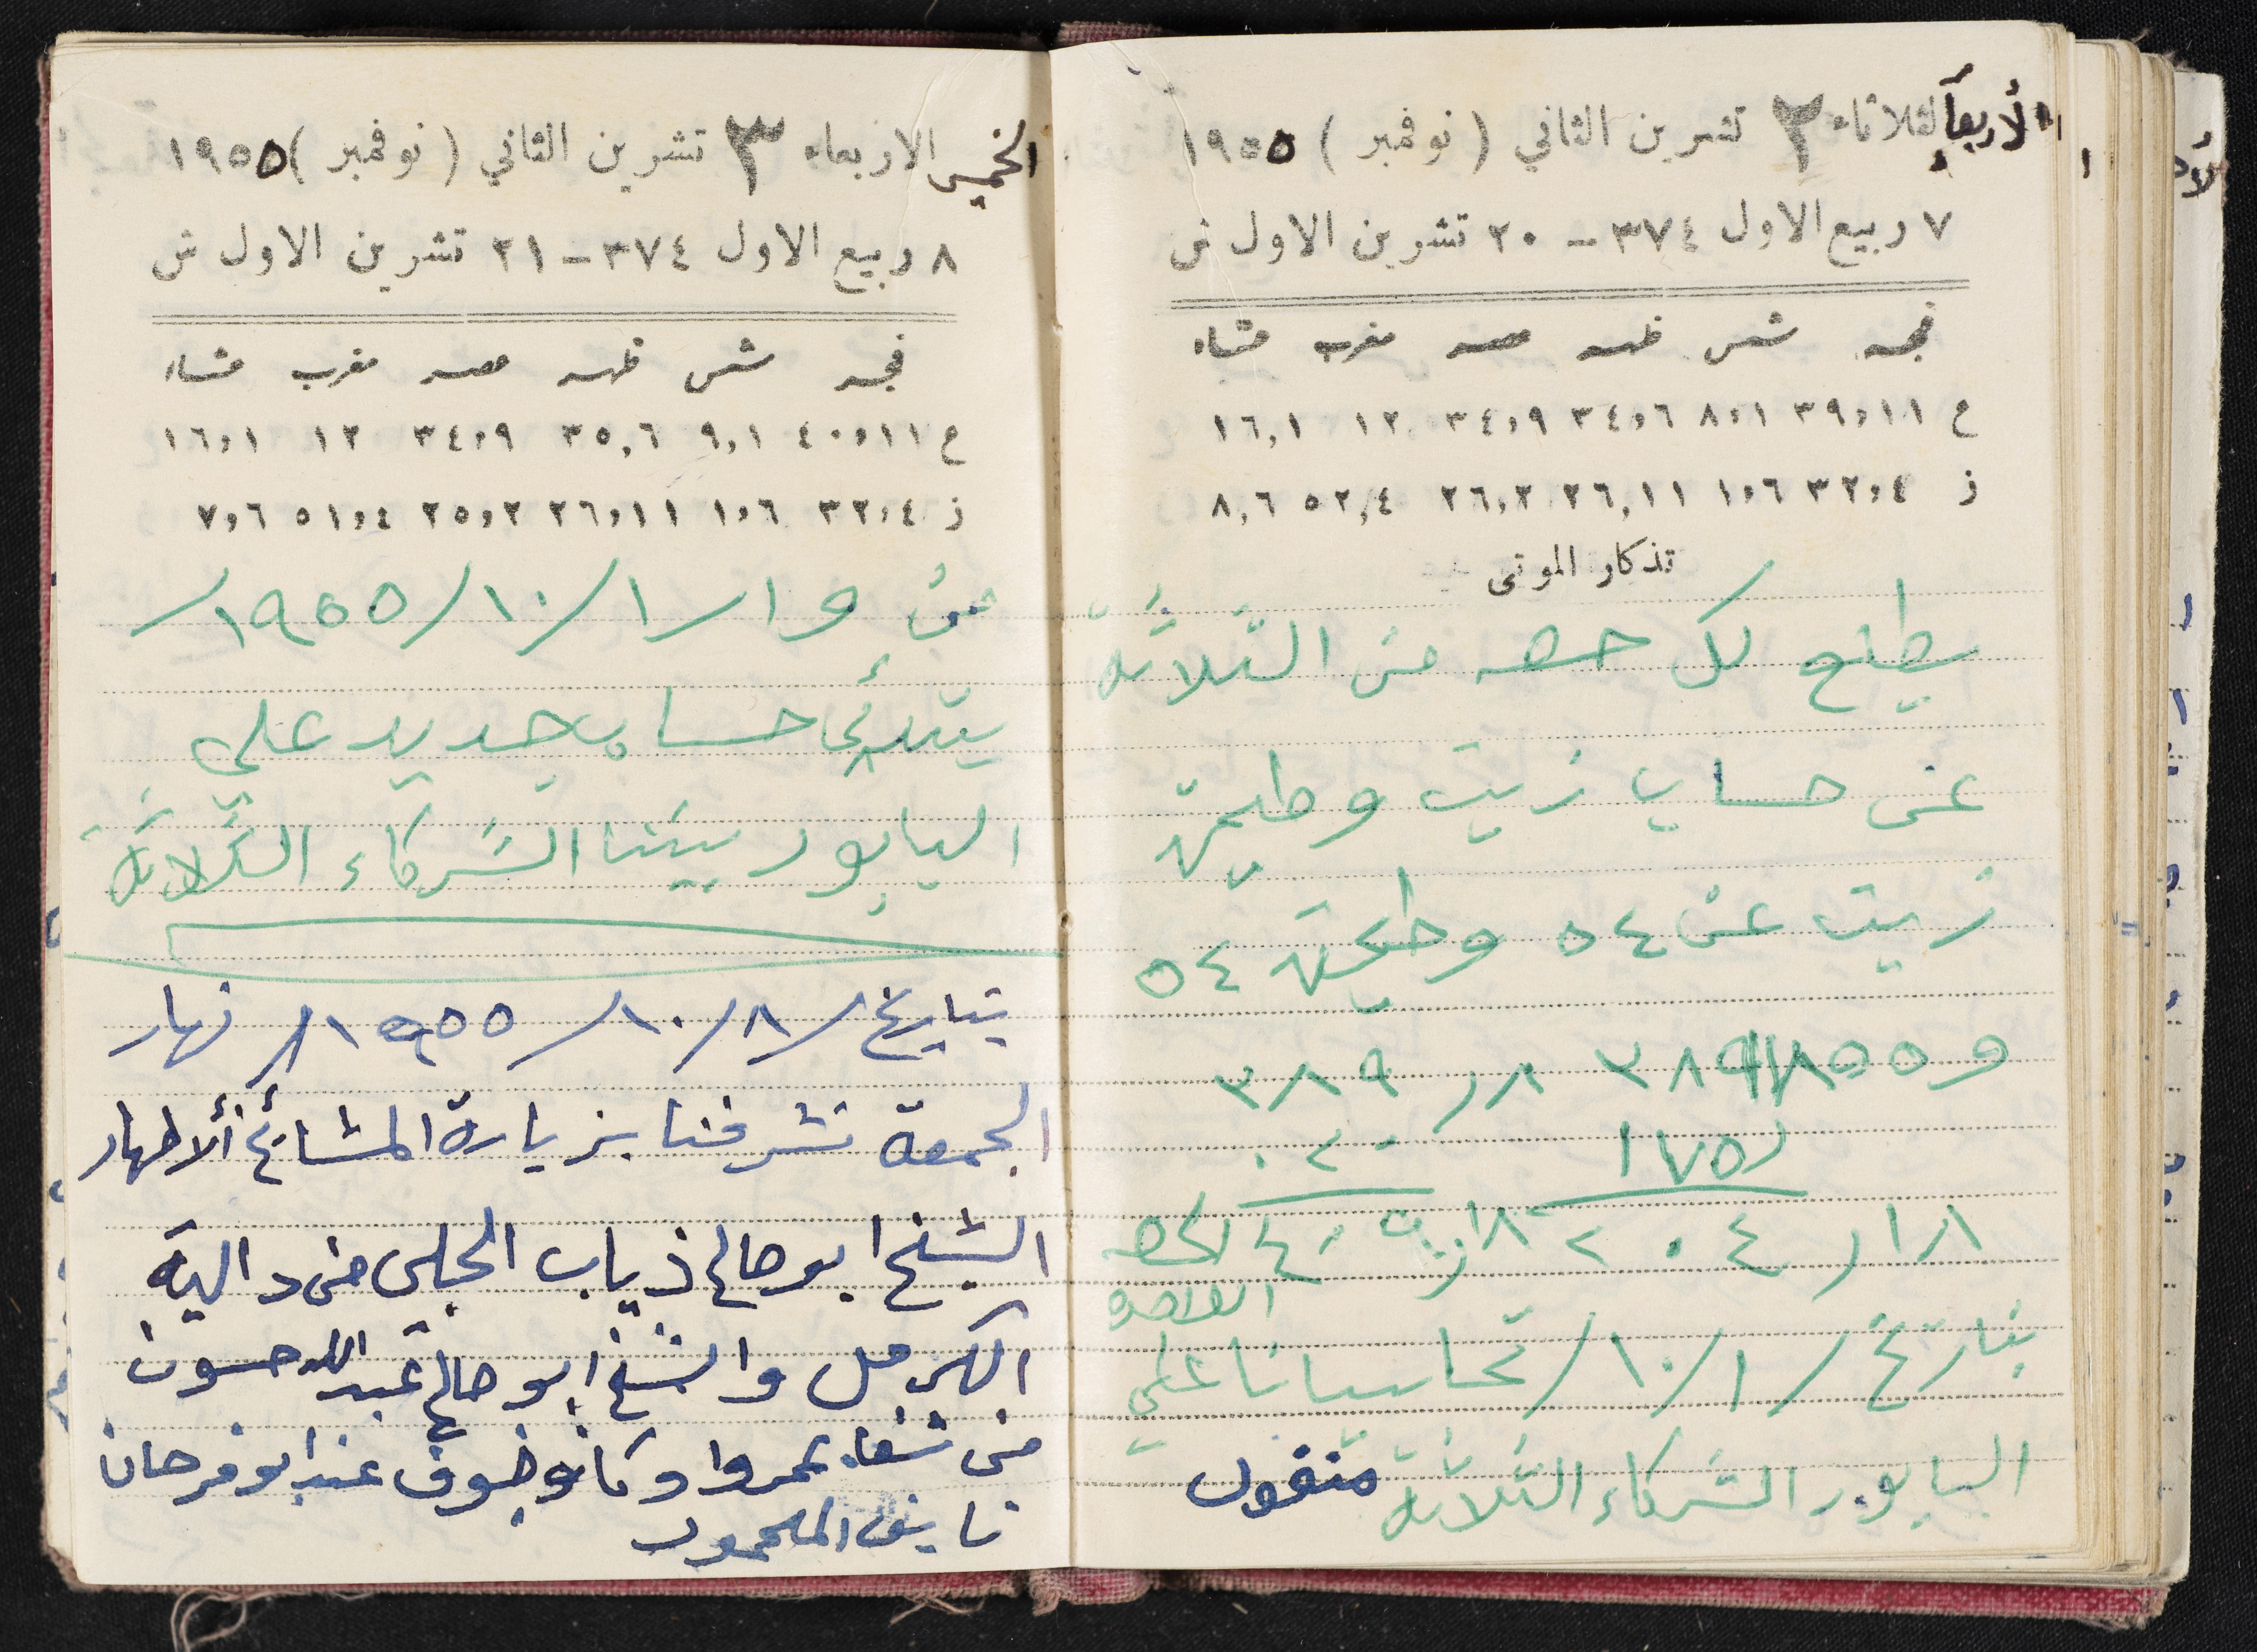 الأربعاء الثلاثاء ٢ تشرين الثاني ( نوفمبر ) ١٩٥٥
٧ ربيع الاول ٣٧٤ - ٢٠ تشرين الاول ش
فجر شمس ظهر عصر مغرب عشاء
ع ٣٩,١١ ٨,١ ٣٤,٦ ٣٤,٩ ١٢ ١٦,١
ز ٣٢,٤ ١,٦ ٢٦,١١ ٢٦,٢ ٥٢,٤ ٨,٦
تذكار الموتى
يطلع لكل حصه من الثلاثة
عن حساب زيت وطحين
زيت عن ٥٤ وطحين ٥٤
و ٥٥
٣٨٩
١٧٥
الحصه
الواحده
بتاريخ / ١ / ١٠ / تحاسبنا على
البابور الشركاء الثلاثة منقول
الخميس الاربعاء ٣ تشرين الثاني ( نوفمبر ) ١٩٥٥
٨ ربيع الاول ٣٧٤ - ٢١ تشرين الاول ش
فجر شمس ظهر عصر مغرب عشاء
ع ٤٠,١١ ٩,١ ٣٥,٦ ٣٤,٩ ١٢ ١٦,١
ز ٣٢,٤ ١,٦ ٢٦,١١ ٢٥,٢ ٥١,٤ ٧,٦
من و ١ / ١ / ١٠ / ١٩٥٥ /
يبتدئ حساب جديد على
البابور بيننا الشركاء الثلاثة
بتاريخ / ٨ / ١٠ / ١٩٥٥ / نهار
الجمعة تشرفنا بزيارة المشائخ ألأطهار
الشيخ ابو صالح ذياب الحلبي من دالية
الكرمل والشيخ ابو صالح عبدالله حسون
من شفاعمروا وكانو ضيوف عند ابو فرحان
نايف المحمود